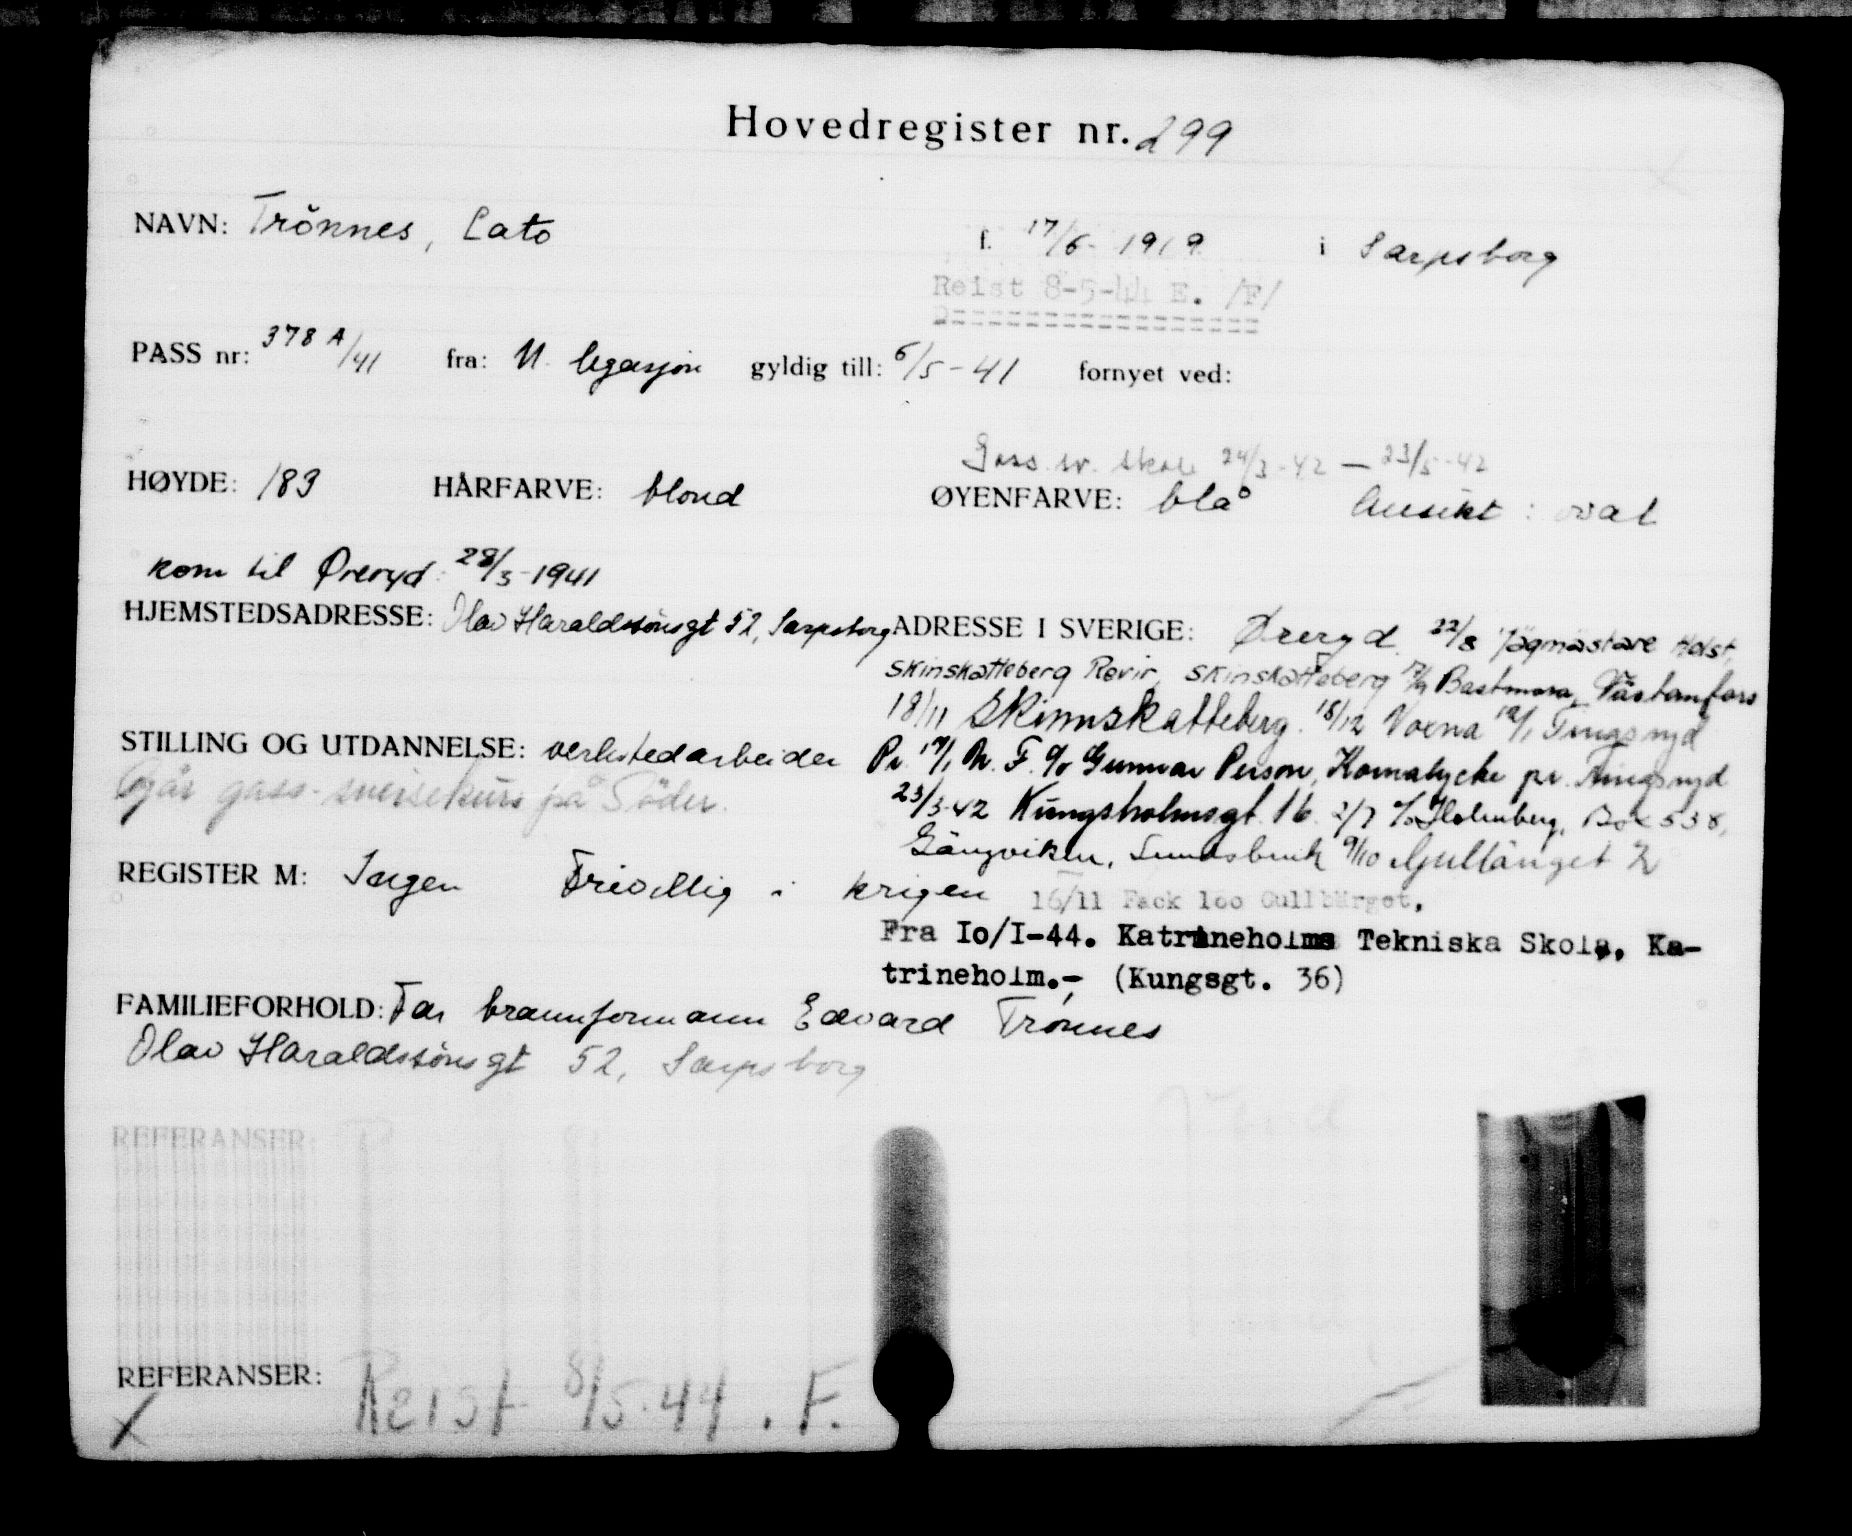 Hovedregister nr. 299
NAVN: Trönnes, Cato f. 17/6-1919 i Sarpsborg
Reist 8-5-44 E. /F/
PASS nr: 378 A/41 fra: N. legasjon gyldig till: 6/5-41 fornyet ved:
Gass sv. skole 24/3-42 — 23/5-42
HØYDE: 183 HÅRFARVE: blond ØYENFARVE: blå Ansikt: oval
kom til Øreryd: 28/3-1941
HJEMSTEDSADRESSE: Olav Haraldssönsgt 52, Sarpsborg ADRESSE I SVERIGE: Øreryd. 22/8 Jägmästare Holst,
Skinskatteberg Revir, Skinskatteberg Bastmora, Västanfors
18/11 Skinnskatteberg. 18/12 Voxna 12/1 Tingsryd
STILLING OG UTDANNELSE: verkstedarbeider Pr. 19/1 N.F. c/o Gunnar Person, Kornalycke pr. Tingsryd
Går gass-sveisekurs på Söder. 23/3-42 Kungsholmsgt 16 2/7 c/o Holmberg, Box 538,
Gångviken, Sundsbruk 9/10 Gullänget
REGISTER M: Ingen Frivillig i krigen 16/11 Fack 100 Gullänget.
Fra Io/I-44. Katrineholms Tekniska Skola, Ka-
trineholm.- (Kungsgt. 36)
FAMILIEFORHOLD: Far brannformann Edvard Trönnes
Olav Haraldssönsgt 52, Sarpsborg
REFERANSER:
REFERANSER: Reist 8/5-44. F.